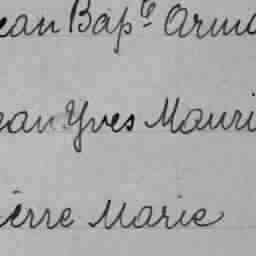 ean Bapᵉ Arm
ean Yves Mauri
ierre Marie